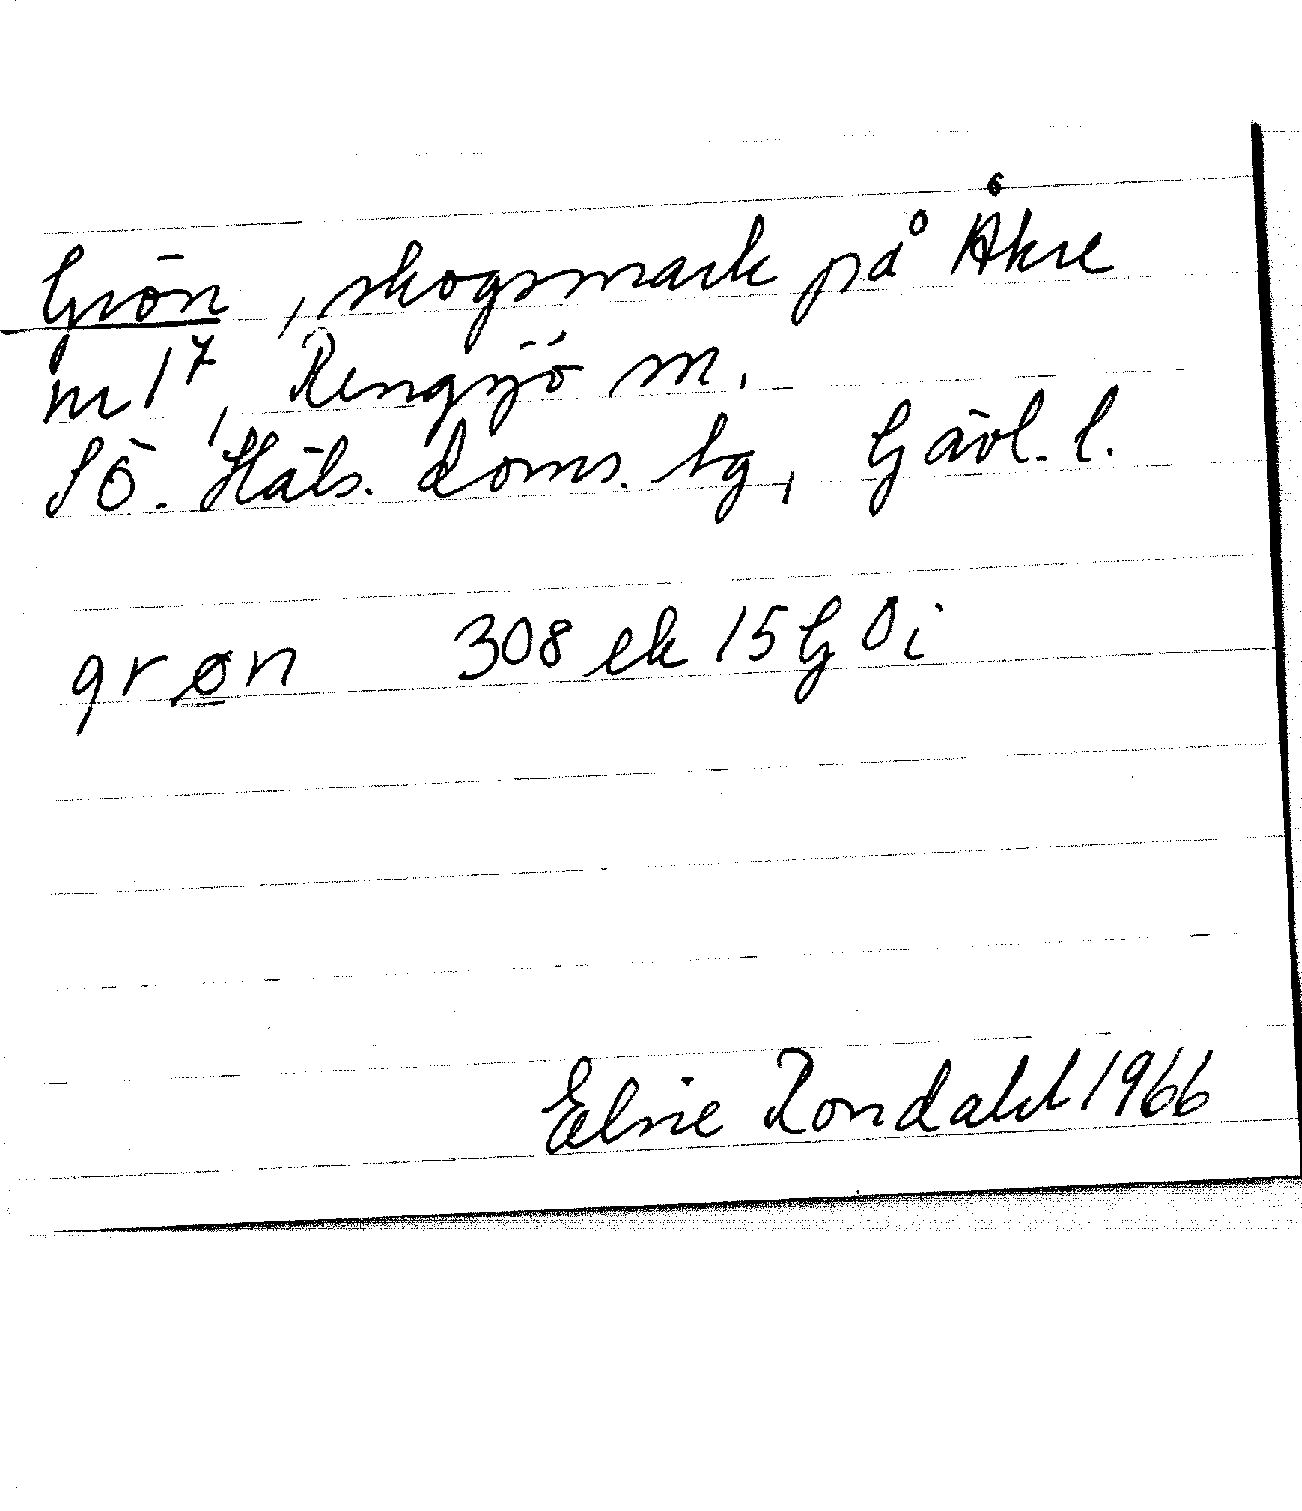 Grön, skogsmark på Åkre
nr 1⁷, Rengsjö sn.
Sö. Häls. doms. tg, Gävl. l.
grøn 308 ek 15 G 0 i
Elsie Rondahl 1966